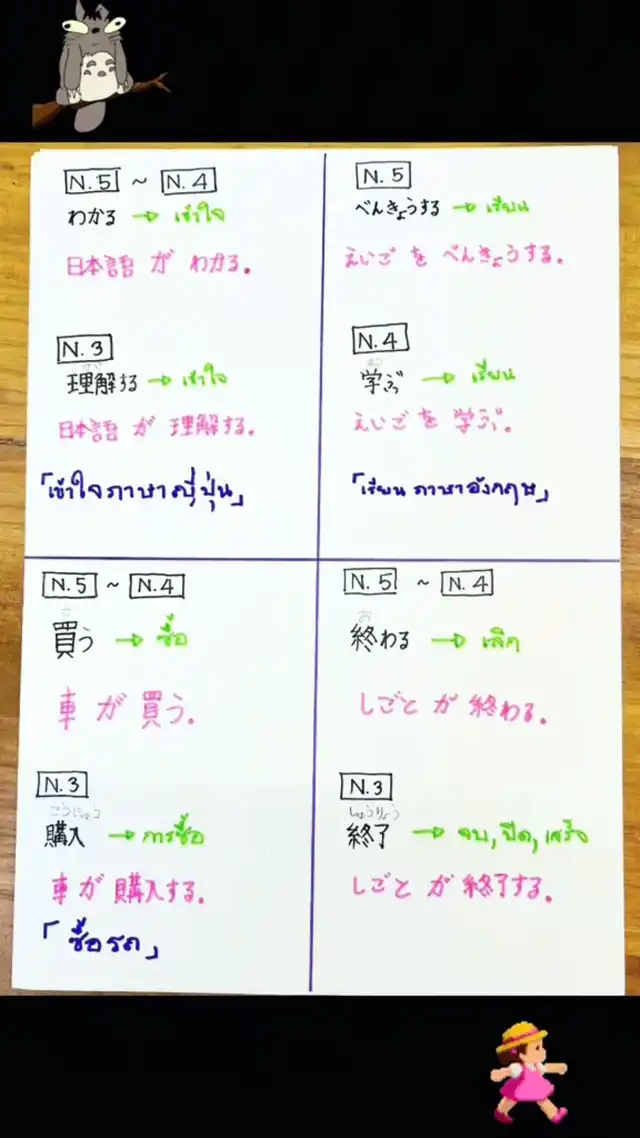 N.5 ~ N.4
わかる → เข้าใจ
日本語 が わかる。
N.3
理解する → เข้าใจ
日本語 が 理解する。
「เข้าใจภาษาญี่ปุ่น」
N.5
べんきょうする → เรียน
えいご を べんきょうする。
N.4
学ぶ → เรียน
えいご を 学ぶ。
「เรียน ภาษาอังกฤษ」
N.5 ~ N.4
買う → ซื้อ
車 が 買う。
N.3
こうにゅう
購入 → การซื้อ
車 が 購入する。
「ซื้อรถ」
N.5 ~ N.4
お
終わる → เลิก
しごと が 終わる。
N.3
しゅうりょう
終了 → จบ, ปิด, เสร็จ
しごと が 終了する。